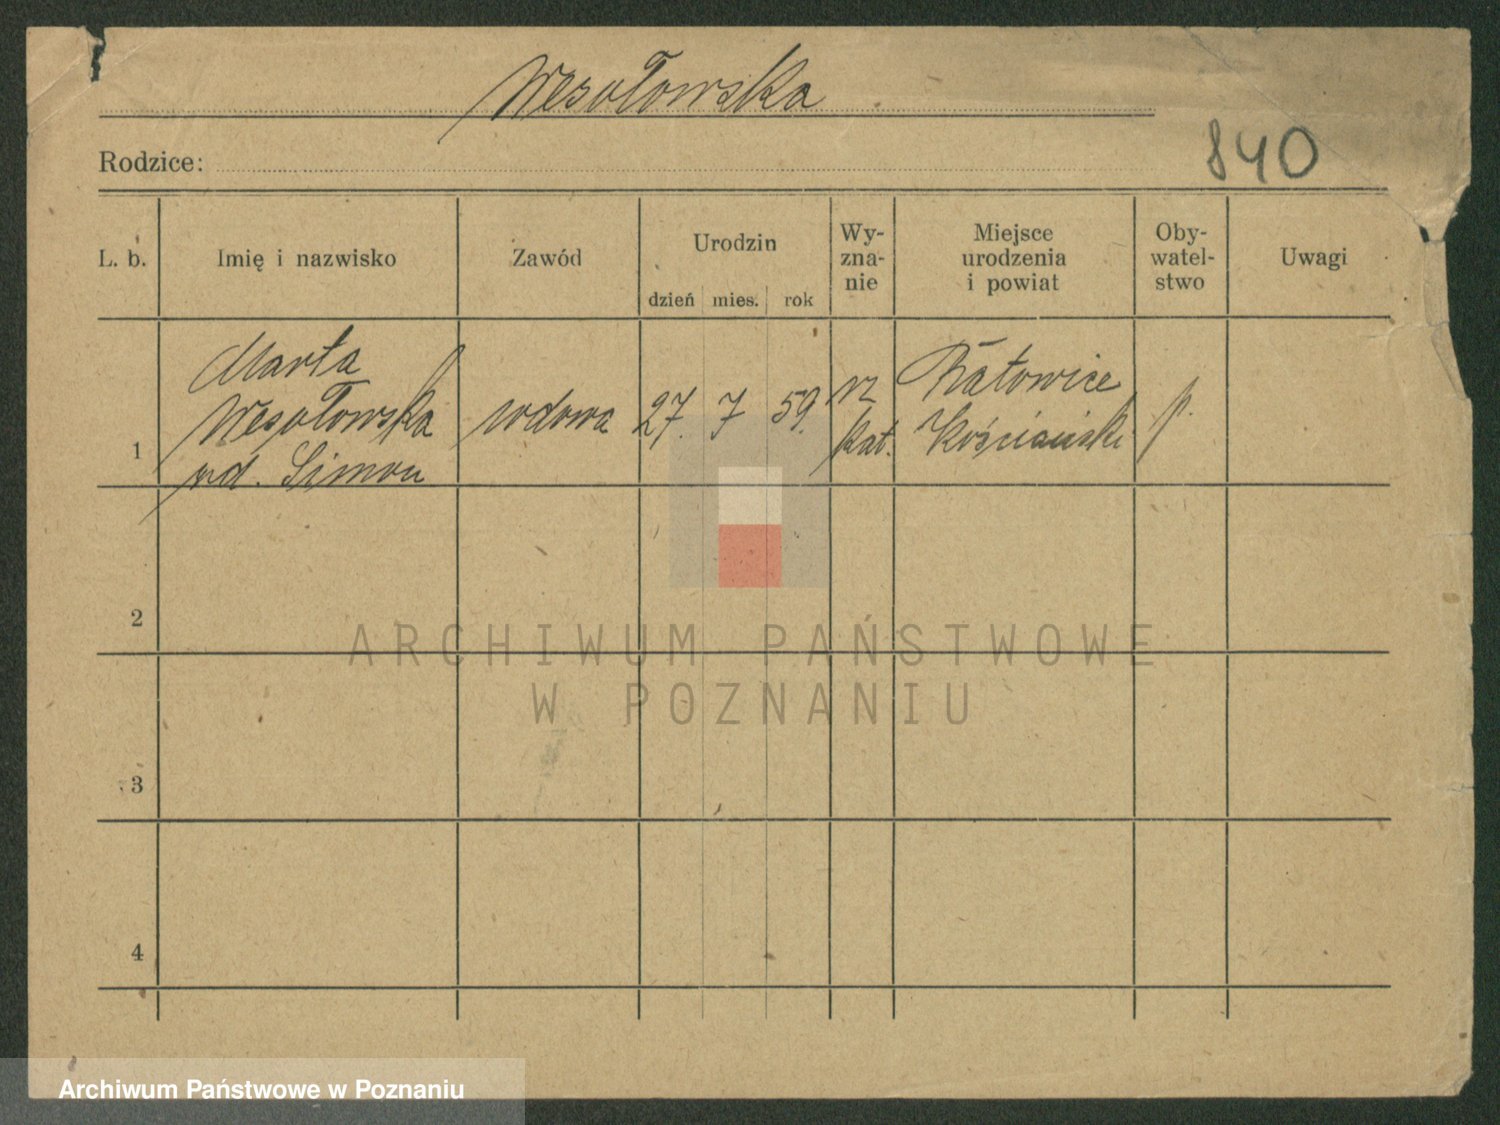 Wesołowska
840
Rodzice:
L. b.
Imię i nazwisko
Zawód
Urodzin
dzień mies. rok
Wy-
zna-
nie
Miejsce
urodzenia
i powiat
Oby-
watel-
stwo
Uwagi
1
Marta
Wesołowska
wd. Simon
wdowa
27. 7 59.
rz
kat.
Katowice
Kościański
p.
2
3
4
ARCHIWUM PAŃSTWOWE
W POZNANIU
Archiwum Państwowe w Poznaniu